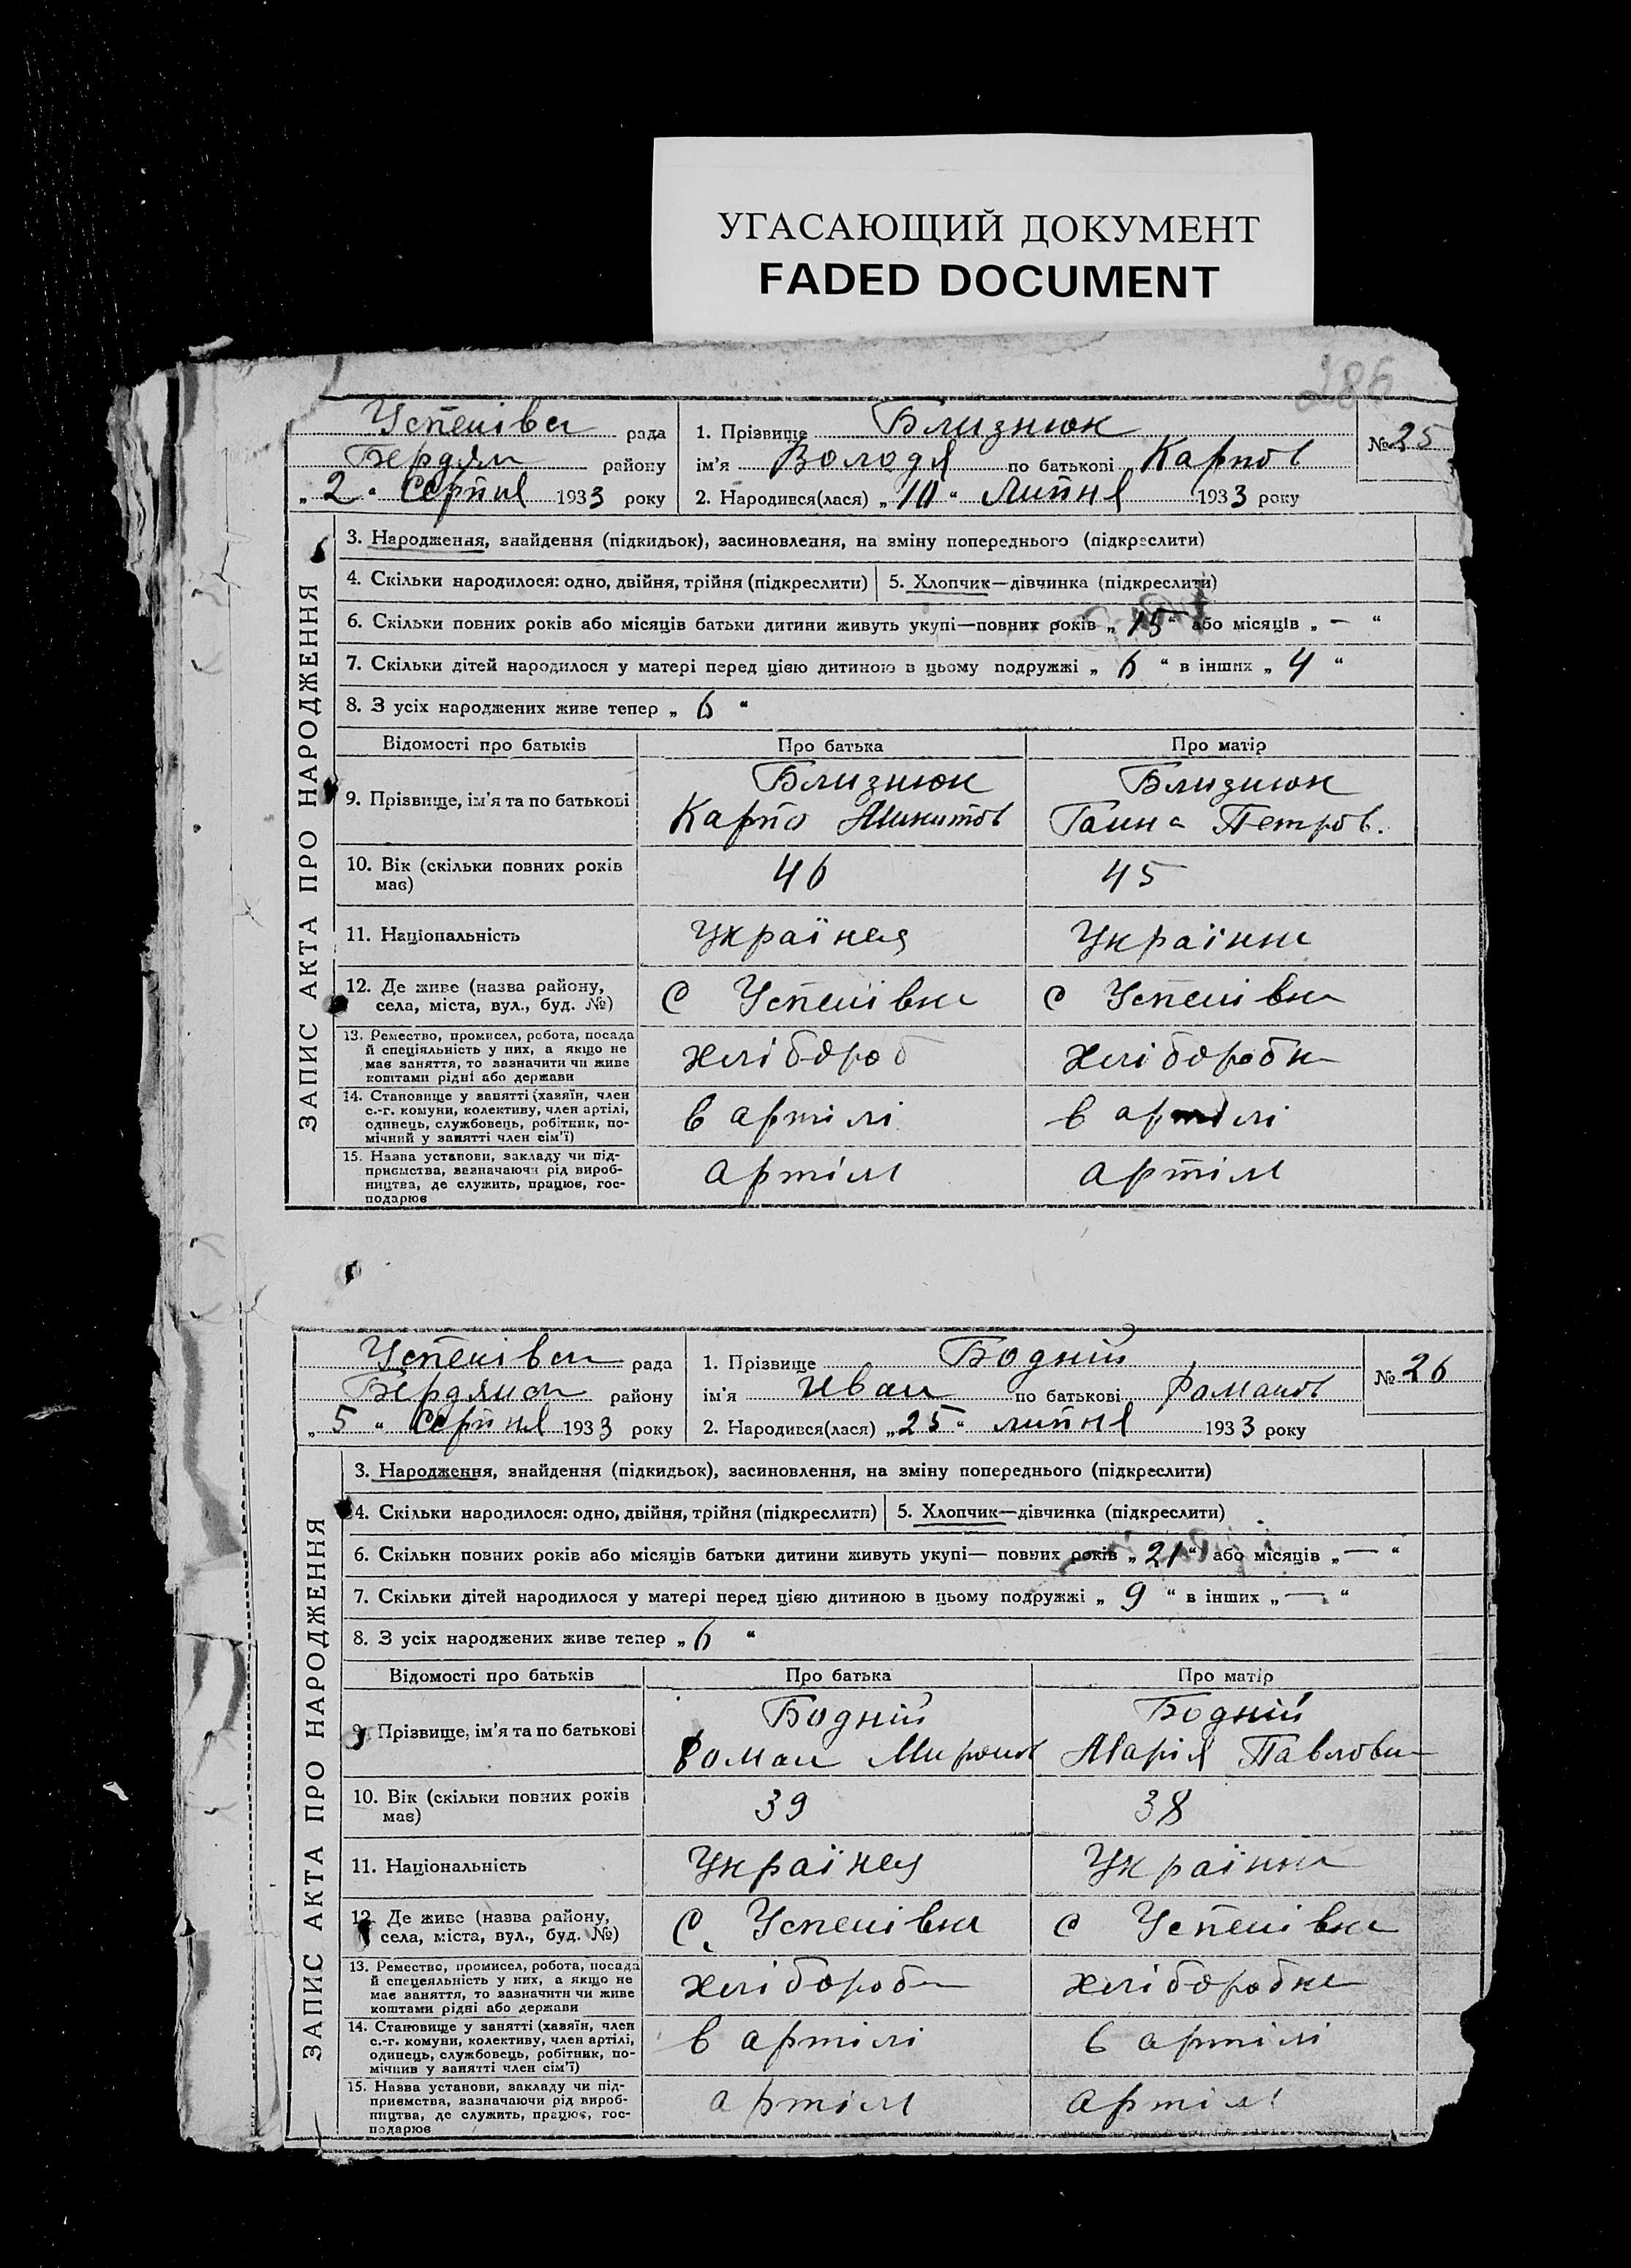 УГАСАЮЩИЙ ДОКУМЕНТ
FADED DOCUMENT
286
Успенівка рада
Бердян району
„ 2 “ Серпня 1933 року
1. Прізвище Близнюк
ім'я Володя по батькові Карпов
2. Народився(лася) „ 10 “ Липня 1933 року
№ 25
ЗАПИС АКТА ПРО НАРОДЖЕННЯ
3. Народження, знайдення (підкидьок), засиновлення, на зміну попереднього (підкреслити)
4. Скільки народилося: одно, двійня, трійня (підкреслити) 5. Хлопчик—дівчинка (підкреслити)
6. Скільки повних років або місяців батьки дитини живуть укупі—повних років „ 15 “ або місяців „ — “
7. Скільки дітей народилося у матері перед цією дитиною в цьому подружжі „ 6 “ в інших „ 4 “
8. З усіх народжених живе тепер „ 6 “
Відомості про батьків Про батька Про матір
9. Прізвище, ім'я та по батькові
Близнюк
Карпо Микитов
Близнюк
Ганна Петров.
10. Вік (скільки повних років
має)
46 45
11. Національність Українец Українка
12. Де живе (назва району,
села, міста, вул., буд. №)
С Успенівка с Успенівка
13. Ремество, промисел, робота, посада
й спеціяльність у них, а якщо не
має заняття, то зазначити чи живе
коштами рідні або держави
хлібороб хліборобка
14. Становище у занятті (хазяїн, член
с.-г. комуни, колективу, член артілі,
одинець, службовець, робітник, по-
мічний у занятті член сім'ї)
в артілі в артілі
15. Назва установи, закладу чи під-
приємства, зазначаючи рід вироб-
ництва, де служить, працює, гос-
подарює
артіль артіль
Успенівка рада
Бердянск району
„ 5 “ Серпня 1933 року
1. Прізвище Бодний
ім'я Иван по батькові Романов
2. Народився(лася) „ 25 “ липня 1933 року
№ 26
ЗАПИС АКТА ПРО НАРОДЖЕННЯ
3. Народження, знайдення (підкидьок), засиновлення, на зміну попереднього (підкреслити)
4. Скільки народилося: одно, двійня, трійня (підкреслити) 5. Хлопчик—дівчинка (підкреслити)
6. Скільки повних років або місяців батьки дитини живуть укупі— повних років „ 21 “ або місяців „ — “
7. Скільки дітей народилося у матері перед цією дитиною в цьому подружжі „ 9 “ в інших „ — “
8. З усіх народжених живе тепер „ 6 “
Відомості про батьків Про батька Про матір
9. Прізвище, ім'я та по батькові
Бодній
Роман Миронов
Бодній
Марія Павловна
10. Вік (скільки повних років
має)
39 38
11. Національність Українец Українка
12. Де живе (назва району,
села, міста, вул., буд. №)
С. Успенівка с Успенівка
13. Ремество, промисел, робота, посада
й спецеяльність у них, а якщо не
має заняття, то зазначити чи живе
коштами рідні або держави
хлібороба хліборобка
14. Становище у занятті (хазяїн, член
с.-г. комуни, колективу, член артілі,
одинець, службовець, робітник, по-
мічнив у занятті член сім'ї)
в артілі в артілі
15. Назва установи, закладу чи під-
приємства, зазначаючи рід вироб-
ництва, де служить, працює, гос-
подарює
артіль артіль